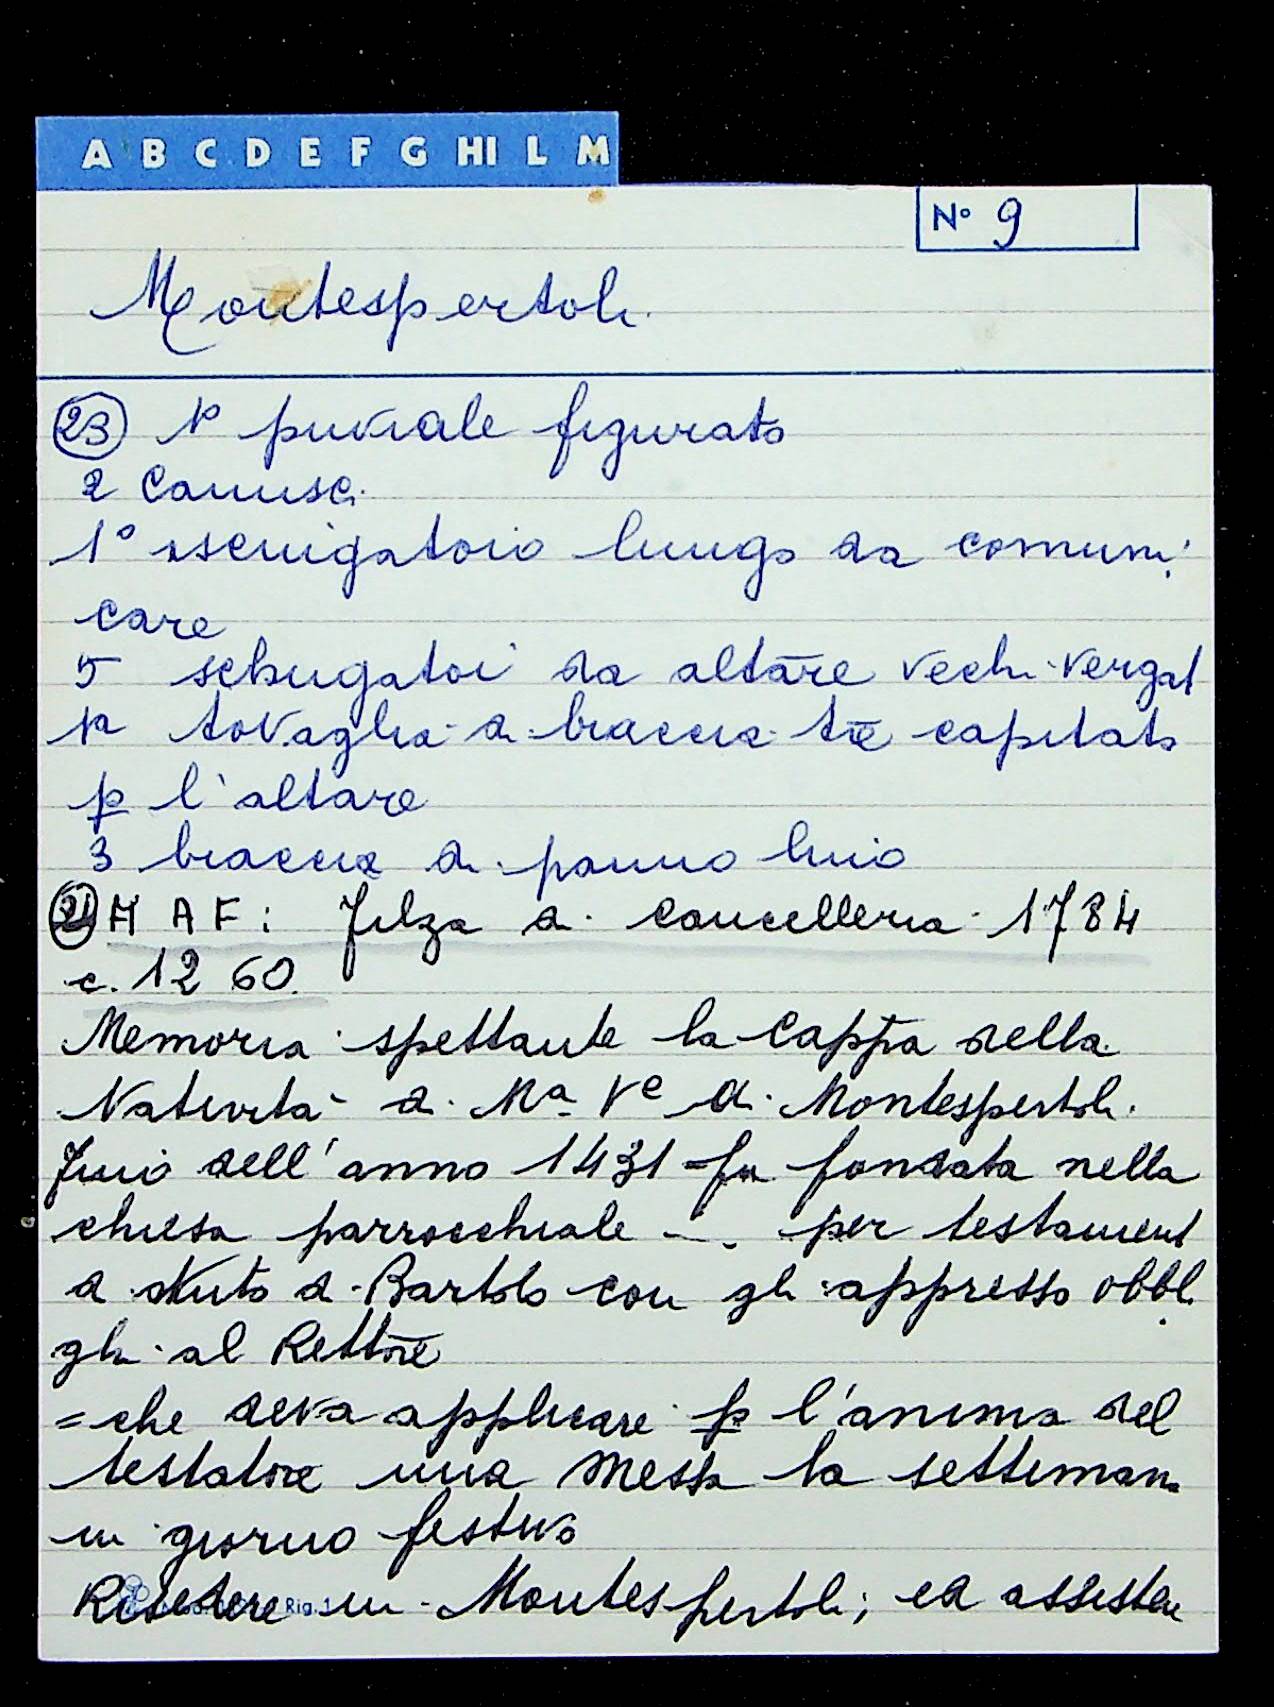 A B C D E F G HI L M
N° 9
Montespertoli
23 1º piviale figurato
2 Camisci
1° asciugatoio lungo da comuni
care
5 schugatoi da altare vechi vergat
1a tovaglia di braccia tre capitato
p l'altare
3 braccia di panno lino
24 A A F: Filza di cancelleria 1784
c. 1260.
Memoria spettante la Cappa della
Natività di Ma Ve di Montespertoli
Fino dell'anno 1431 fu fondata nella
chiesa parrocchiale --. per testament
di Nuto di Bartolo con gli appresso obbl
ghi al Rettore
= che deva applicare p l'anima del
testatore una Messa la settimana
in giorno festivo
Risedere in Montespertoli; ed assistere
Rig. 1